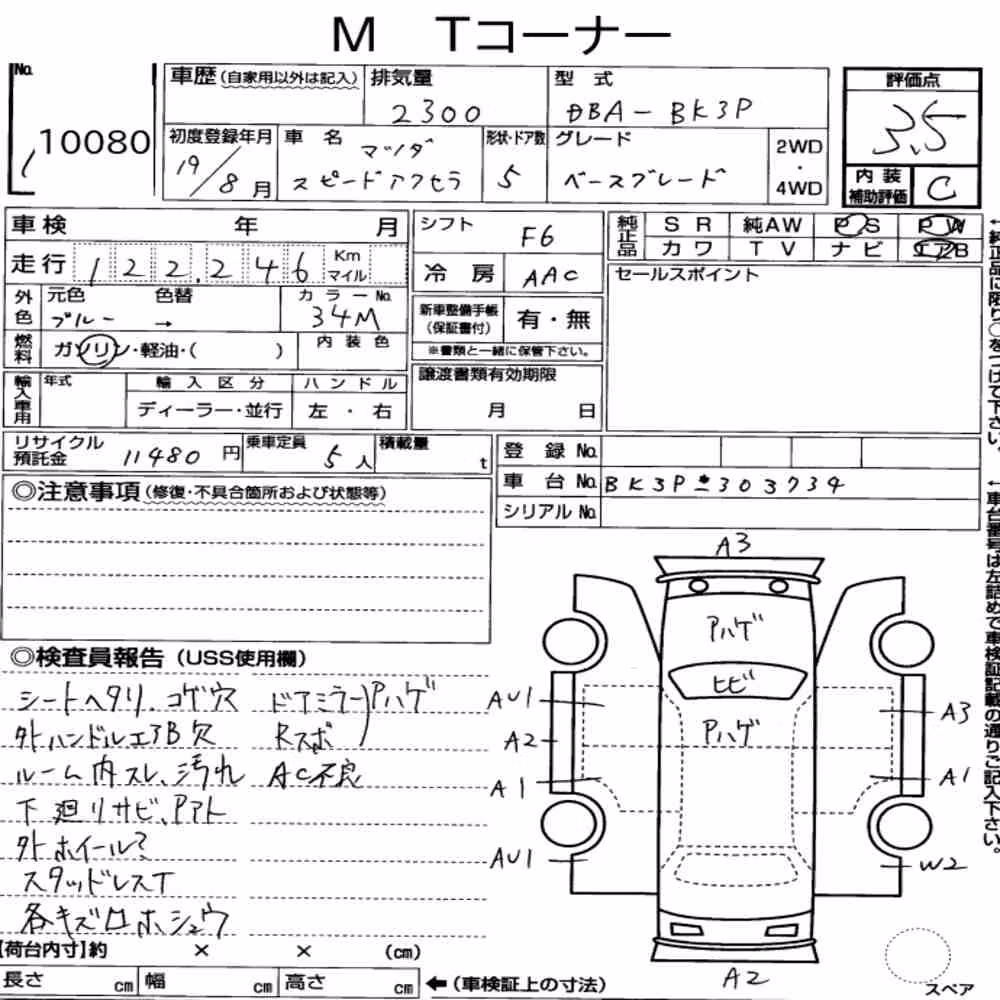 M Tコーナー
No. 10080
車歴 (自家用以外は記入)
排気量 2300
型式 DBA-BK3P
評価点 3.5
初度登録年月 19/8月
車名 マツダ スピードアクセラ
形状・ドア数 5
グレード ベースグレード
2WD・4WD
内装補助評価 C
車検 年 月
走行 122,246 Km マイル
シフト F6
冷房 AAC
純正品 SR 純AW PS PW
カワ TV ナビ エアB
セールスポイント
外色 元色 ブルー 色替 → カラーNo. 34M
燃料 ガソリン・軽油・( )
内装色
新車整備手帳(保証書付) 有・無
※書類と一緒に保管下さい。
輸入車用 年式 輸入区分 ディーラー・並行 ハンドル 左・右
譲渡書類有効期限 月 日
リサイクル預託金 11480円
乗車定員 5人
積載量 t
登録No.
車台No. BK3P*303734
シリアルNo.
◎注意事項(修復・不具合箇所および状態等)
◎検査員報告(USS使用欄)
シートヘタリ、コゲ穴 ドアミラー)Aハゲ
外ハンドルエアB欠 Rスポ
ルーム内スレ、汚れ AC不良
下廻りサビ、Pアト
外ホイール?
スタッドレスT
各キズロホシュウ
A3
Aハゲ
ヒビ
Aハゲ
AU1
A2
A1
AU1
A3
A1
W2
A2
スペア
【荷台内寸】約 × × (cm)
長さ cm 幅 cm 高さ cm ←(車検証上の寸法)
←純正品に限り○をつけて下さい。
←車台番号は左詰めで車検証記載の通りご記入下さい。